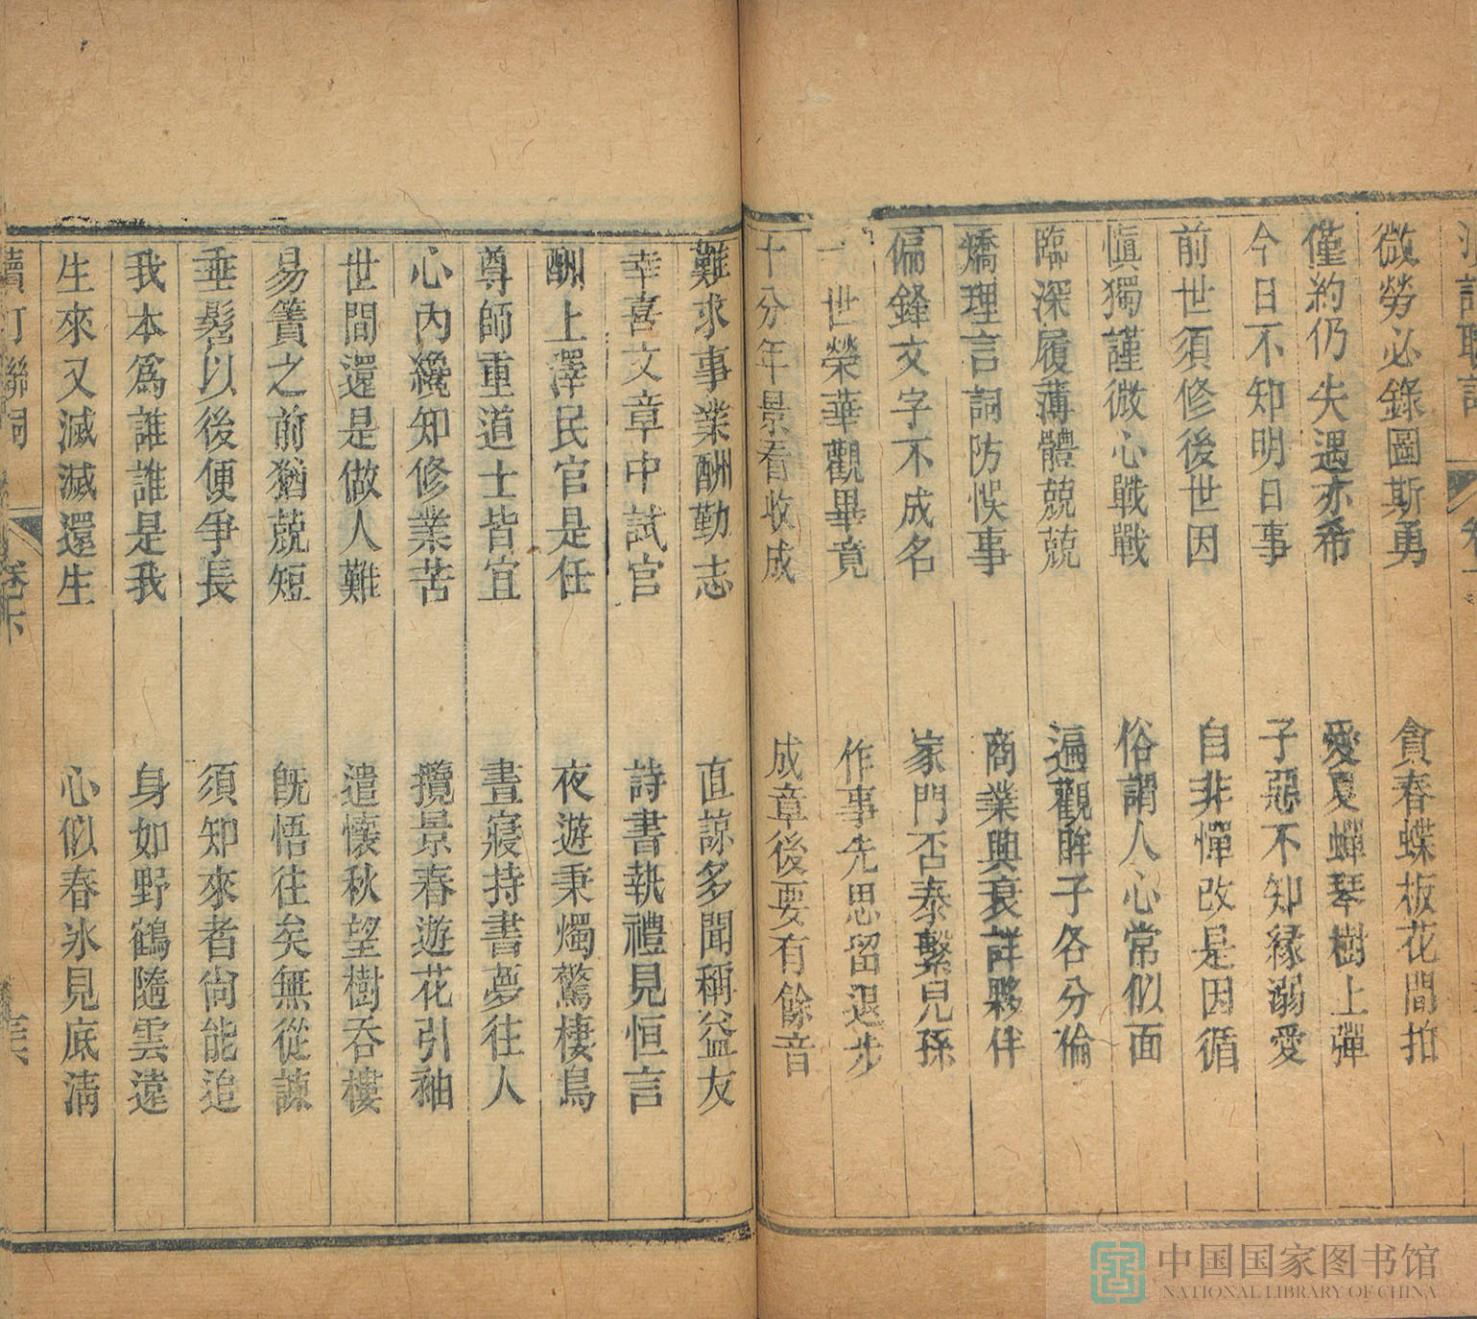 微勞必錄圖斯勇 貪春蝶板花間拍
僅約仍失遇亦希 愛夏蟬琴樹上彈
今日不知明日事 子惡不知緣溺愛
前世須修後世因 自非憚改是因循
慎獨謹微心戰戰 俗謂人心常似面
臨深履薄體兢兢 遍觀眸子各分倫
燏理言詞防悞事 商業興衰詳夥伴
偏鋒文字不成名 家門否泰繫兒孫
一世榮華觀畢竟 作事先思留退步
十分年景看收成 成章後要有餘音
難求事業酬勤志 直諒多聞稱益友
幸喜文章中試官 詩書執禮見恒言
酬上澤民官是任 夜遊秉燭驚棲鳥
尊師重道士皆宜 晝寢持書夢往人
心內纔知修業苦 攬景春遊花引袖
世間還是做人難 遣懷秋望樹吞樓
易簀之前猶兢短 既悟往矣無從諫
垂髫以後便爭長 須知來者尙能追
我本為誰誰是我 身如野鶴隨雲遠
生來又滅滅還生 心似春氷見底淸
卷下
中国国家图书馆
NATIONAL LIBRARY OF CHINA